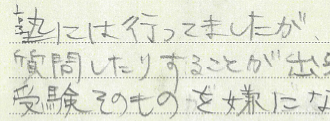 塾には行ってましたが、
質問したりすることが出
受験そのものを嫌にな